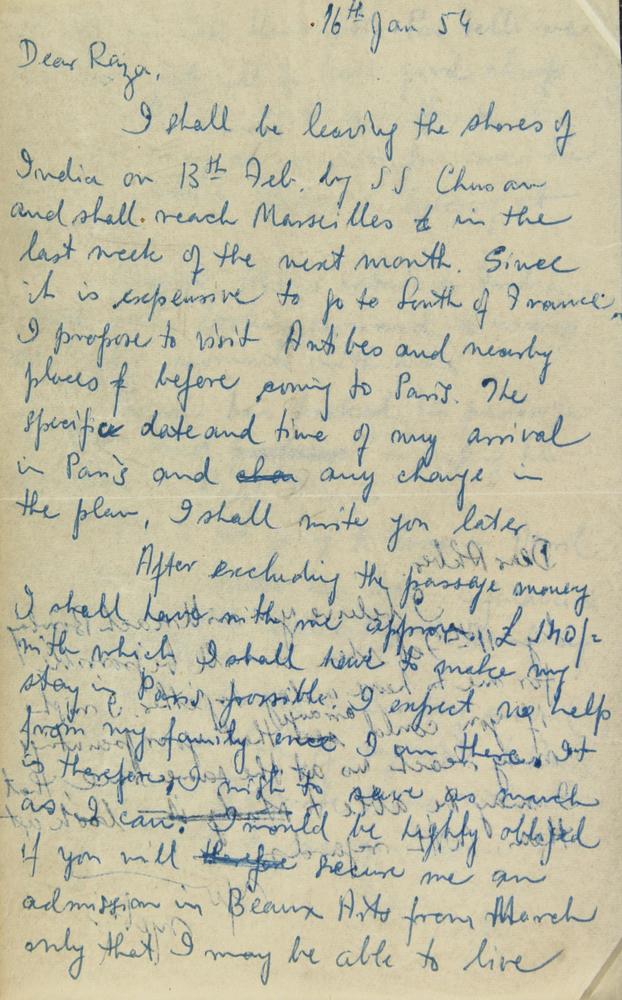 16th Jan 54
Dear Raza,
I shall be leaving the shores of
India on 13th Feb. by SS Chusan
and shall reach Marseilles in the
last week of the next month. Since
it is expensive to go to South of France,
I propose to visit Antibes and nearby
places before coming to Paris. The
specific date and time of my arrival
in Paris and any change in
the plan, I shall write you later.
After excluding the passage money
I shall have with me approx. £ 140/-
with which I shall have to make my
stay in Paris possible. I expect no help
from my family once I am there. It
is therefore, I wish to save as much
as I can. I would be highly obliged
if you will secure me an
admission in Beaux Arts from March
only that I may be able to live